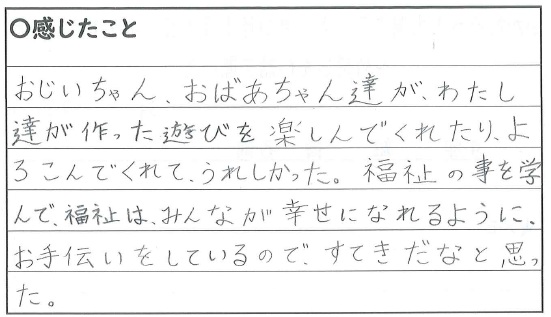 〇感じたこと
おじいちゃん、おばあちゃん達が、わたし
達が作った遊びを楽しんでくれたり、よ
ろこんでくれて、うれしかった。福祉の事を学
んで、福祉は、みんなが幸せになれるように、
お手伝いをしているので、すてきだなと思っ
た。